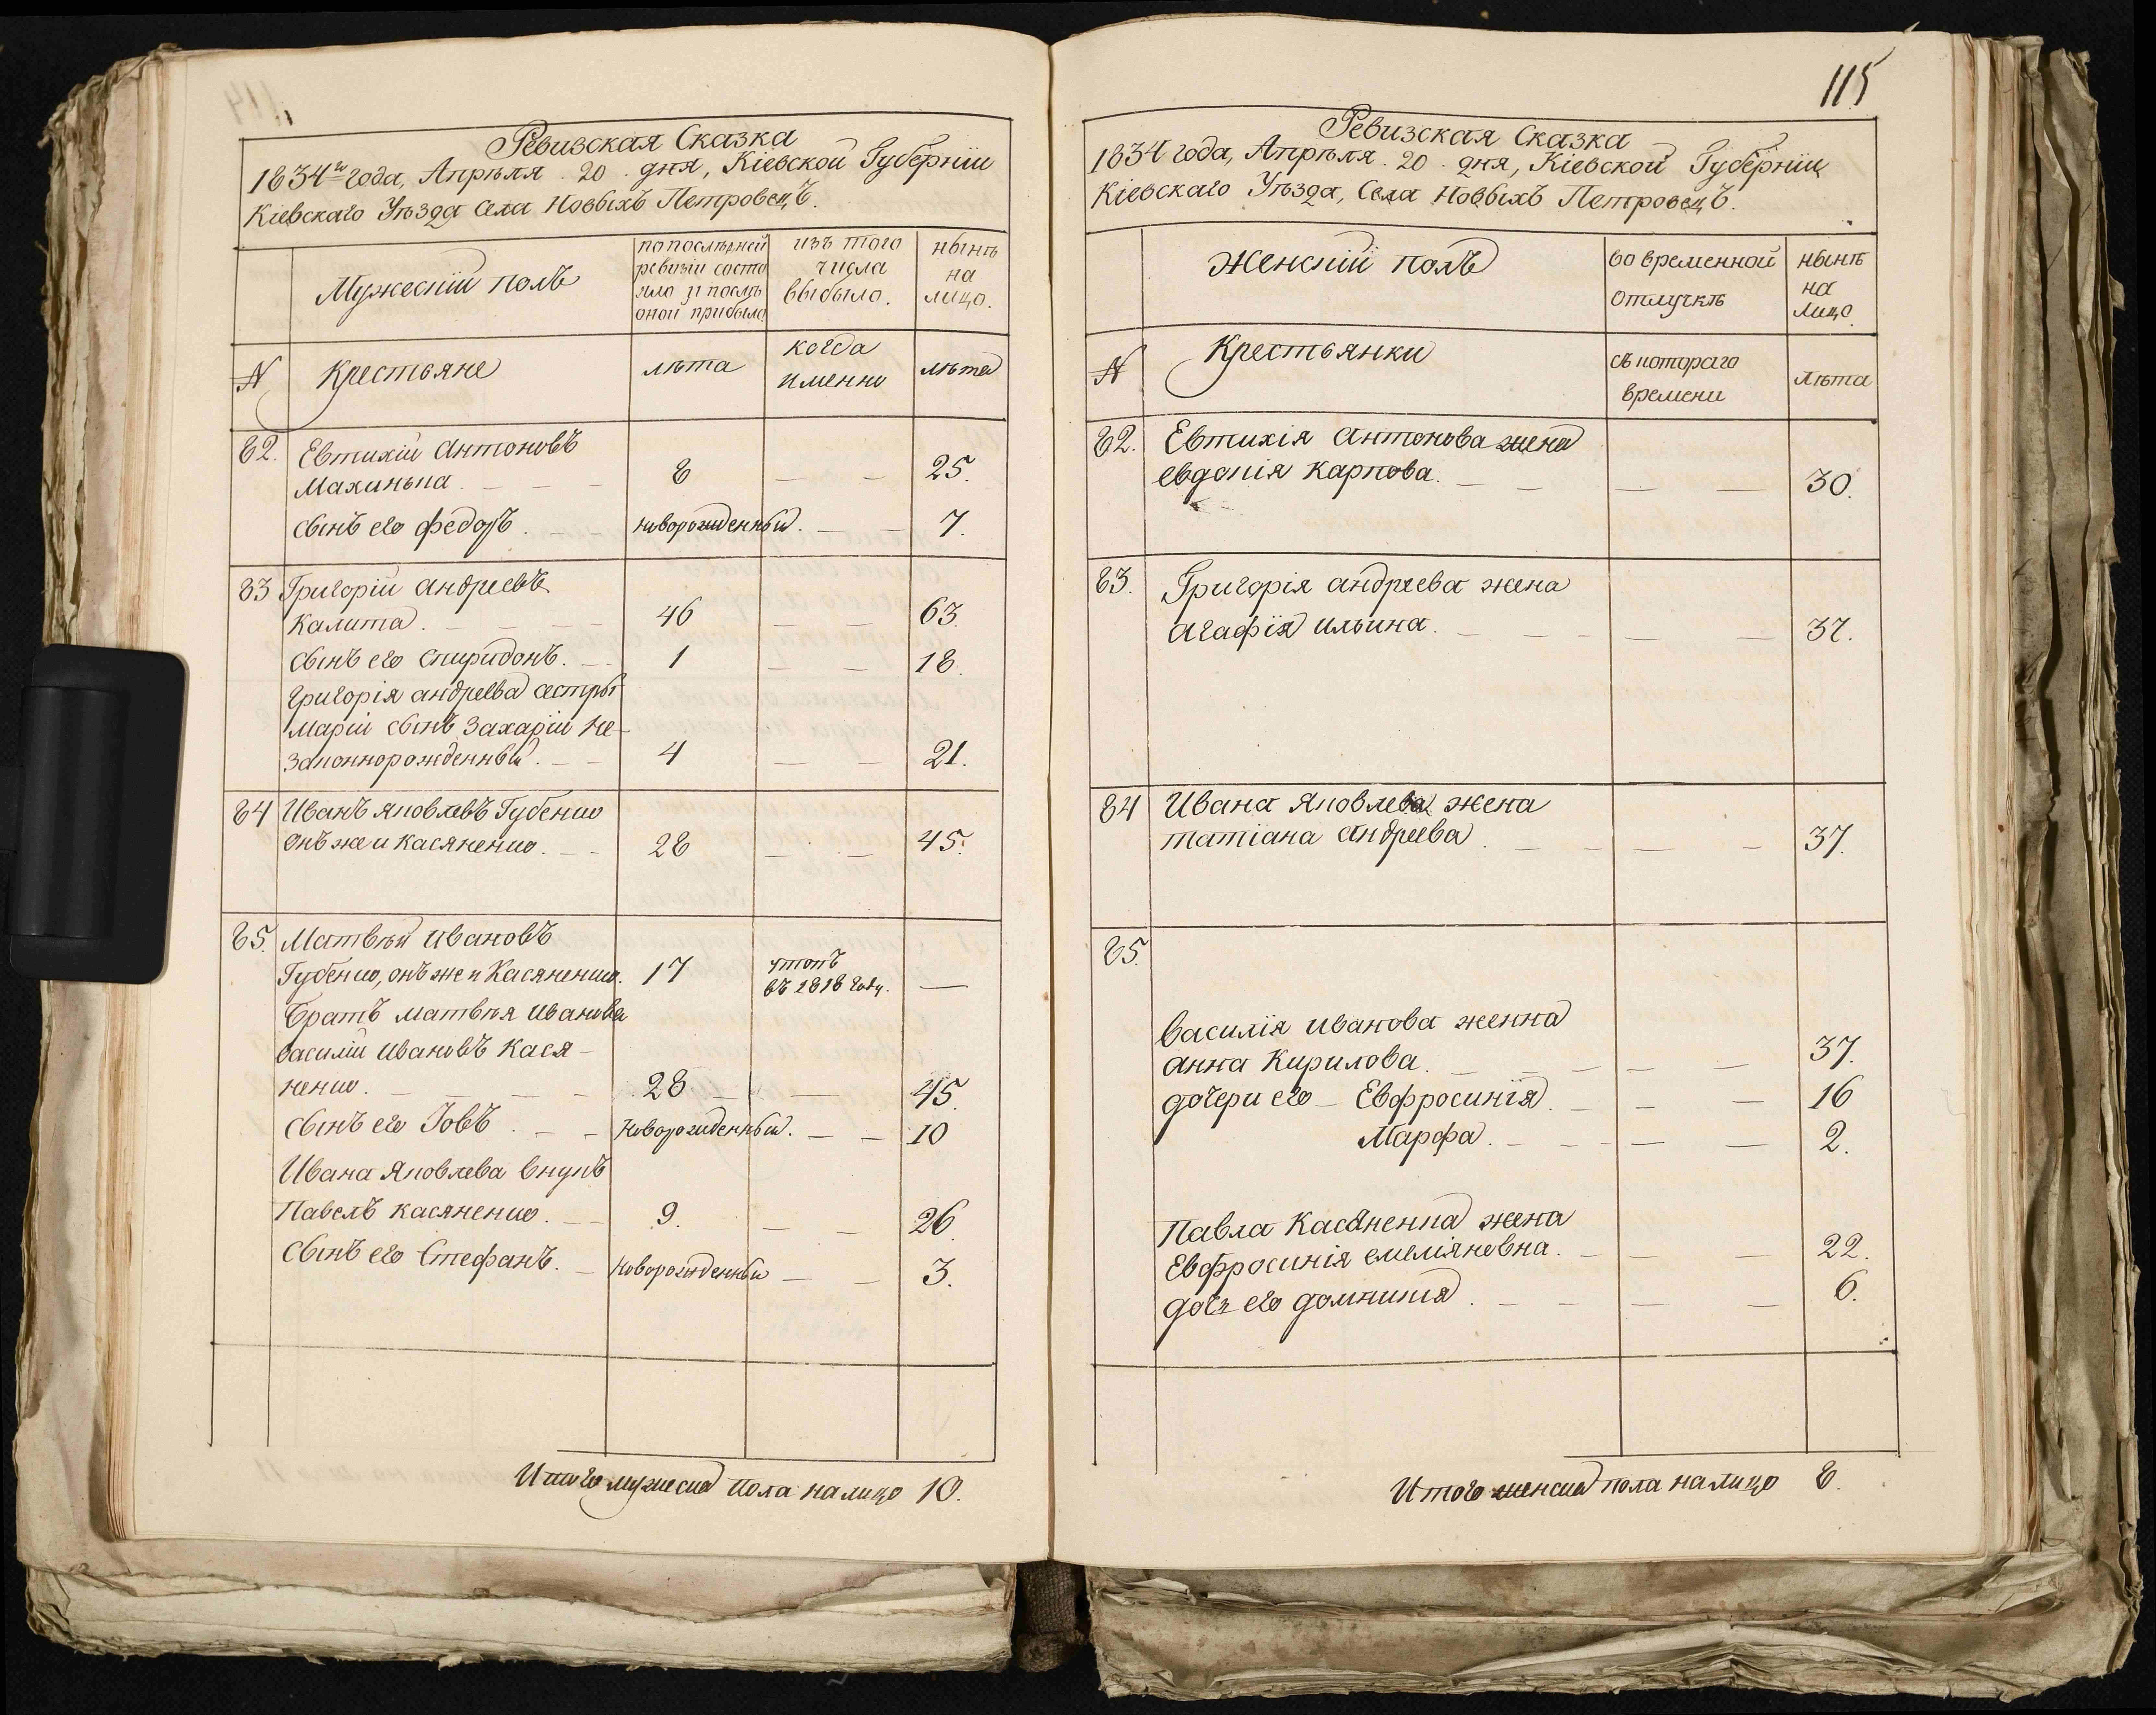 Ревизская Сказка
1834го года, Апрѣля 20 дня, Кіевской Губерніи
Кіевскаго Уѣзда Села Новыхъ Петровецъ.
Мужескій полъ
по послѣдней
ревизіи состо
яло и послѣ
оной прибыло
изъ того
числа
выбыло.
нынѣ
на
лицо.
N
Крестьяне
лѣта
когда
именно
лѣта
82. Евтихій Антоновъ
Махинька. — — — 8 — — 25.
сынъ его Федоръ. — — новорожденный. — — 7.
83 Григорій Андреевъ
Калита. — — — 46 — — 63.
сынъ его Спиридонъ. — 1 — — 18.
Григорія Андреева сестры
Маріи сынъ Захарій не-
законнорожденный. — — 4 — — 21.
84 Иванъ Яковлевъ Губенко
онъ же и Касяненко. — — 28 — — 45.
85. Матвѣй Ивановъ
Губенко, онъ же и Касяненко. 17 утопъ
въ 1818 году. —
Братъ Матвѣя Иванова
Василій Ивановъ Кася-
ненко. — — — — 28 — — 45.
сынъ его Іовъ. — — Новорожденный. — — 10
Ивана Яковлева внукъ
Павелъ Касяненко. — — 9. — — 26.
Сынъ его Стефанъ. — Новорожденный — — 3.
Итого мужеска пола на лицо 10.
115
Ревизская Сказка
1834 года, Апрѣля 20 дня, Кіевской Губерніи
Кіевскаго Уѣзда, Села Новыхъ Петровецъ.
Женскій полъ
во временной
отлучкѣ
нынѣ
на
лицо
N
Крестьянки
съ котораго
времени
лѣта
82. Евтихія Антонова жена
Евдокія Карпова. — — — — 30.
83. Григорія Андреева жена
Агафія Ильина. — — — — — 37.
84 Ивана Яковлева жена
Татіана Андреева. — — — — 37.
85.
Василія Иванова женна
Анна Кирилова. — — — — — 37.
дочери его — Евфросинія. — — — 16
Марфа. — — — — — 2.
Павла Касяненка жена
Евфросинія Емеліяновна. — — — 22.
дочь его Домникія. — — — — 6.
Итого женска пола на лицо 8.